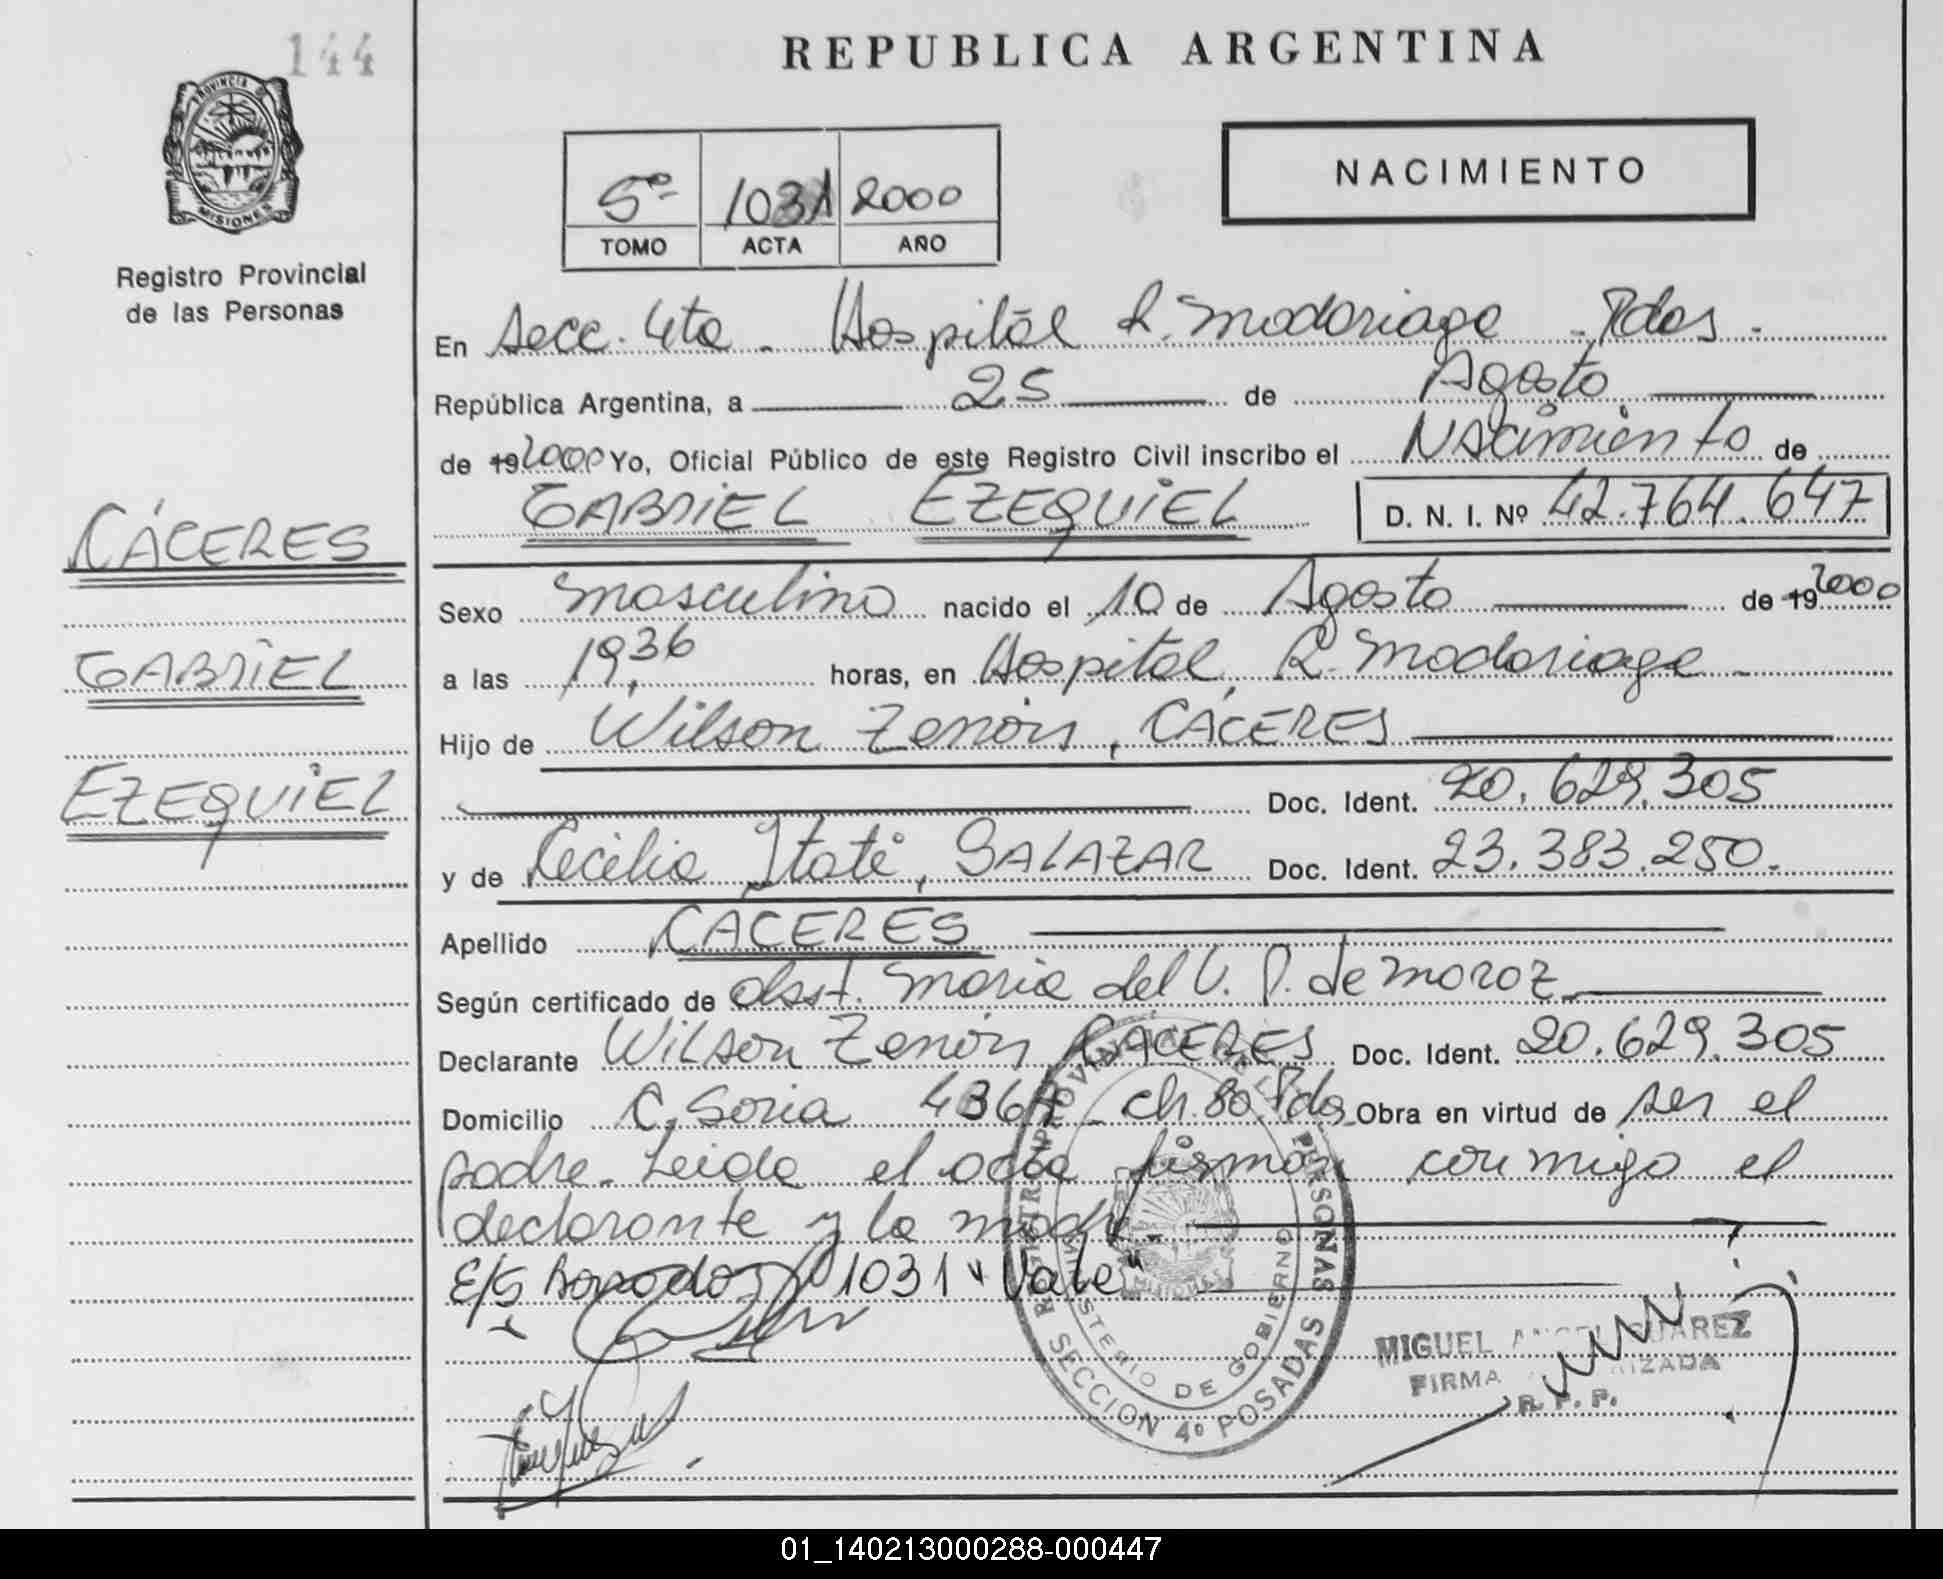 144
REPUBLICA ARGENTINA
PROVINCIA DE
MISIONES
Registro Provincial
de las Personas
5º 1031 2000
TOMO ACTA AÑO
NACIMIENTO
En Secc. 4ta. Hospital R. Madariaga - Pdas.
República Argentina, a 25 de Agosto
de 192000 Yo, Oficial Público de este Registro Civil inscribo el Nacimiento de
GABRIEL EZEQUIEL D. N. I. Nº 42.764.647
CÁCERES
GABRIEL
EZEQUIEL
Sexo masculino nacido el 10 de Agosto de 192000
a las 19,36 horas, en Hospital R. Madariaga
Hijo de Wilson Zenón, CÁCERES
Doc. Ident. 20.629.305
y de Cecilia Itatí, SALAZAR Doc. Ident. 23.383.250.
Apellido CACERES
Según certificado de obst. Maria del V. P. de Moroz
Declarante Wilson Zenón CACERES Doc. Ident. 20.629.305
Domicilio C. Soria 4367 - Ch. 80. Pdas Obra en virtud de ser el
padre. Leida el acta firman conmigo el
declarante y la madre
E/S borrados 1031 "Vale"
REGISTRO PROVINCIAL DE LAS PERSONAS
MINISTERIO DE GOBIERNO
MISIONES
SECCION 4º POSADAS
MIGUEL ANGEL SUAREZ
FIRMA AUTORIZADA
R. P. P.
01_140213000288-000447